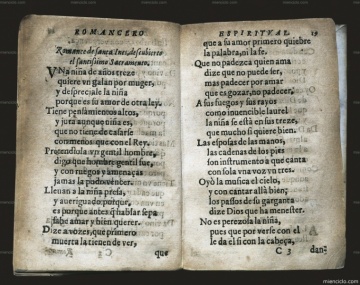 ROMANCERO
Romance de santa Ines, descubierto
el santissimo Sacramento.
VNa niña de años treze
quiere vn galan por muger,
y despreciale la niña
porque es su amor de otra ley.
Tiene pensamientos altos,
y jura aunque niña es,
que no tiene de casarse
con menos que con el Rey.
Pretendiola vn gentil hombre,
digo que hombre gentil fue,
y con ruegos y amenaças
jamas la pudo vencer.
Lleuan a la niña presa,
y aueriguado porque,
es porque antes q̃ hablar sepa
sabe amar y bien querer.
Dize a vozes, que primero
muerta la tienen de ver,
que
ESPIRITVAL
19
que a su amor primero quiebre
la palabra, ni la fe.
Que no padezca quien ama
dize que no puede ser,
mas padecer por amar
que es gozar, no padecer.
A sus fuegos y sus rayos
como inuencible laurel
la niña se està en sus treze,
que mucho si quiere bien.
Las esposas de las manos,
las cadenas de los pies
son instrumento a que canta
con sola vna voz vn tres.
Oyò la musica el cielo,
y con cantar allà bien;
los passos de su garganta
dize Dios que ha menester.
No es perezosa la niña,
pues que por verse con el
le da el si con la cabeça,
C 3
dan-
mienciclo.com